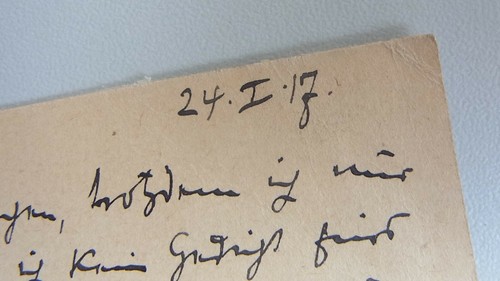 24. I. 17.
trotzdem ich mir
ich kein Gedicht